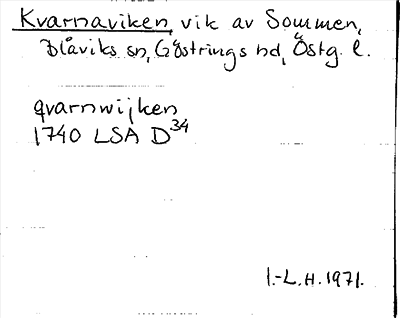 Kvarnaviken, vik av Sommen,
Blåviks sn, Göstrings hd, Östg. l.
qvarnwijken
1740 LSA D34
I.-L.H. 1971.